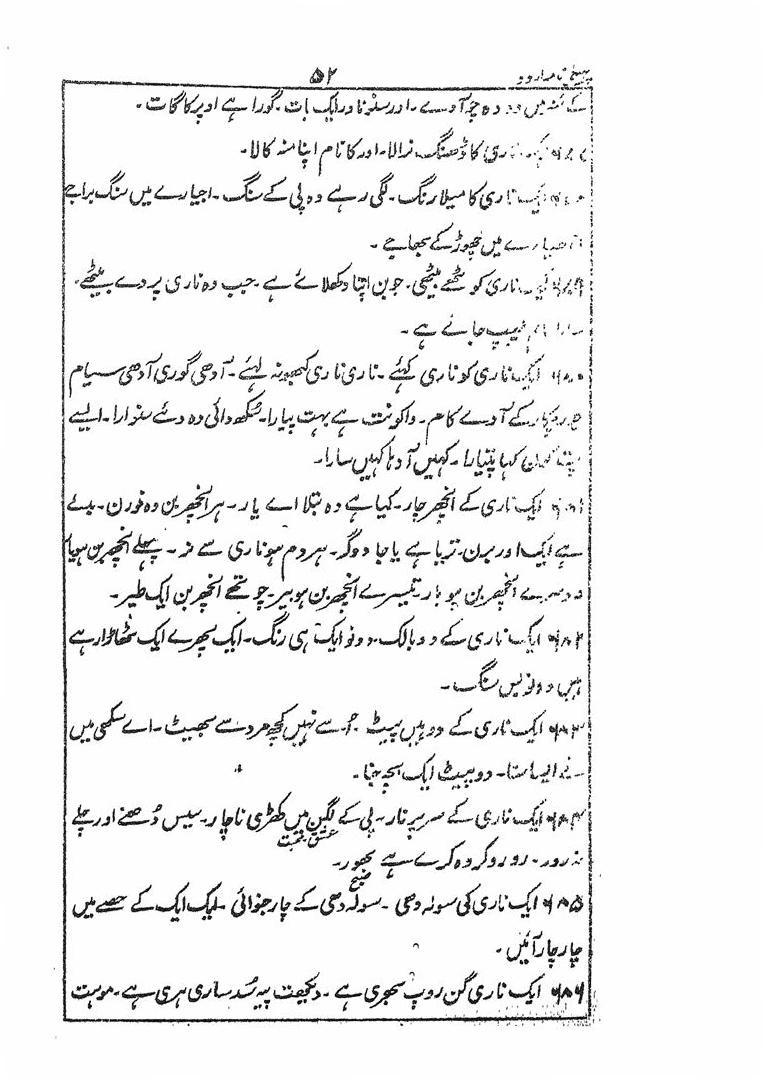 ۵۲
میں دو دہ چوآوے۔ اور سنو نادر ایک بات۔ گورا ہے اوپر کا گات۔
ناری کا ڈھنگ نرالا۔ اور کا نام اپنا منہ کالا۔
ایک ناری کا میلا رنگ۔ لگی رہے وہ پی کے سنگ۔ اجیارے میں سنگ براجے
میں چھوڑ کے بھاجے۔
ناری کوٹھے بیٹھی۔ جوبن اپنا دکھلائے ہے۔ جب وہ ناری پردے بیٹھے۔
چھپ جائے ہے۔
۶۸۰ ایک ناری کو ناری کہئے۔ ناری ناری کبھو نہ لہئے۔ آدھی گوری آدھی سیام
کے آوے کام۔ واکونت ہے بہت پیارا۔ سکھ دائی وہ دئے سنوارا۔ ایسے
کہا پتیارا۔ کہیں آدہا کہیں سارا۔
ایک ناری کے انچھر چار۔ کیا ہے وہ بتلا اے یار۔ ہر انچھر بن وہ فورن۔ بنے
ہے ایک اور برن۔ تریا ہے یا جادوگر۔ ہر دم ہو ناری سے نر۔ پہلے انچھر بن ہویا
دوسرے انچھر بن ہو بار۔ تیسرے انچھر بن ہو بیر۔ چوتھے انچھر بن ایک طیر۔
۶۸۲ ایک ناری کے دو بالک۔ دونو ایک ہی رنگ۔ ایک پھرے ایک ٹھاڑا رہے
ہیں دونوں سنگ۔
۶۸۳ ایک ناری کے دو ہیں پیٹ۔ اُسے نہیں کچھ مرد سے بھیٹ۔ اے سکھی میں
نے ایسا سنا۔ دو پیٹ ایک بچہ جنا۔
۶۸۴ ایک ناری کے سر پر نار۔ پی کے لگن میں کھڑی ناچار۔ سیس دُھنے اور چلے
نہ زور۔ رو رو کر وہ کرے ہے بھور۔
صبح
۶۸۵ ایک ناری کی سولہ دھی۔ سولہ دھی کے چار جوائی۔ ایک ایک کے حصے میں
چار چار آئیں۔
۶۸۶ ایک ناری گن روپ بھری ہے۔ دیکھت پیہ سُد ساری ہری ہے۔ موہت